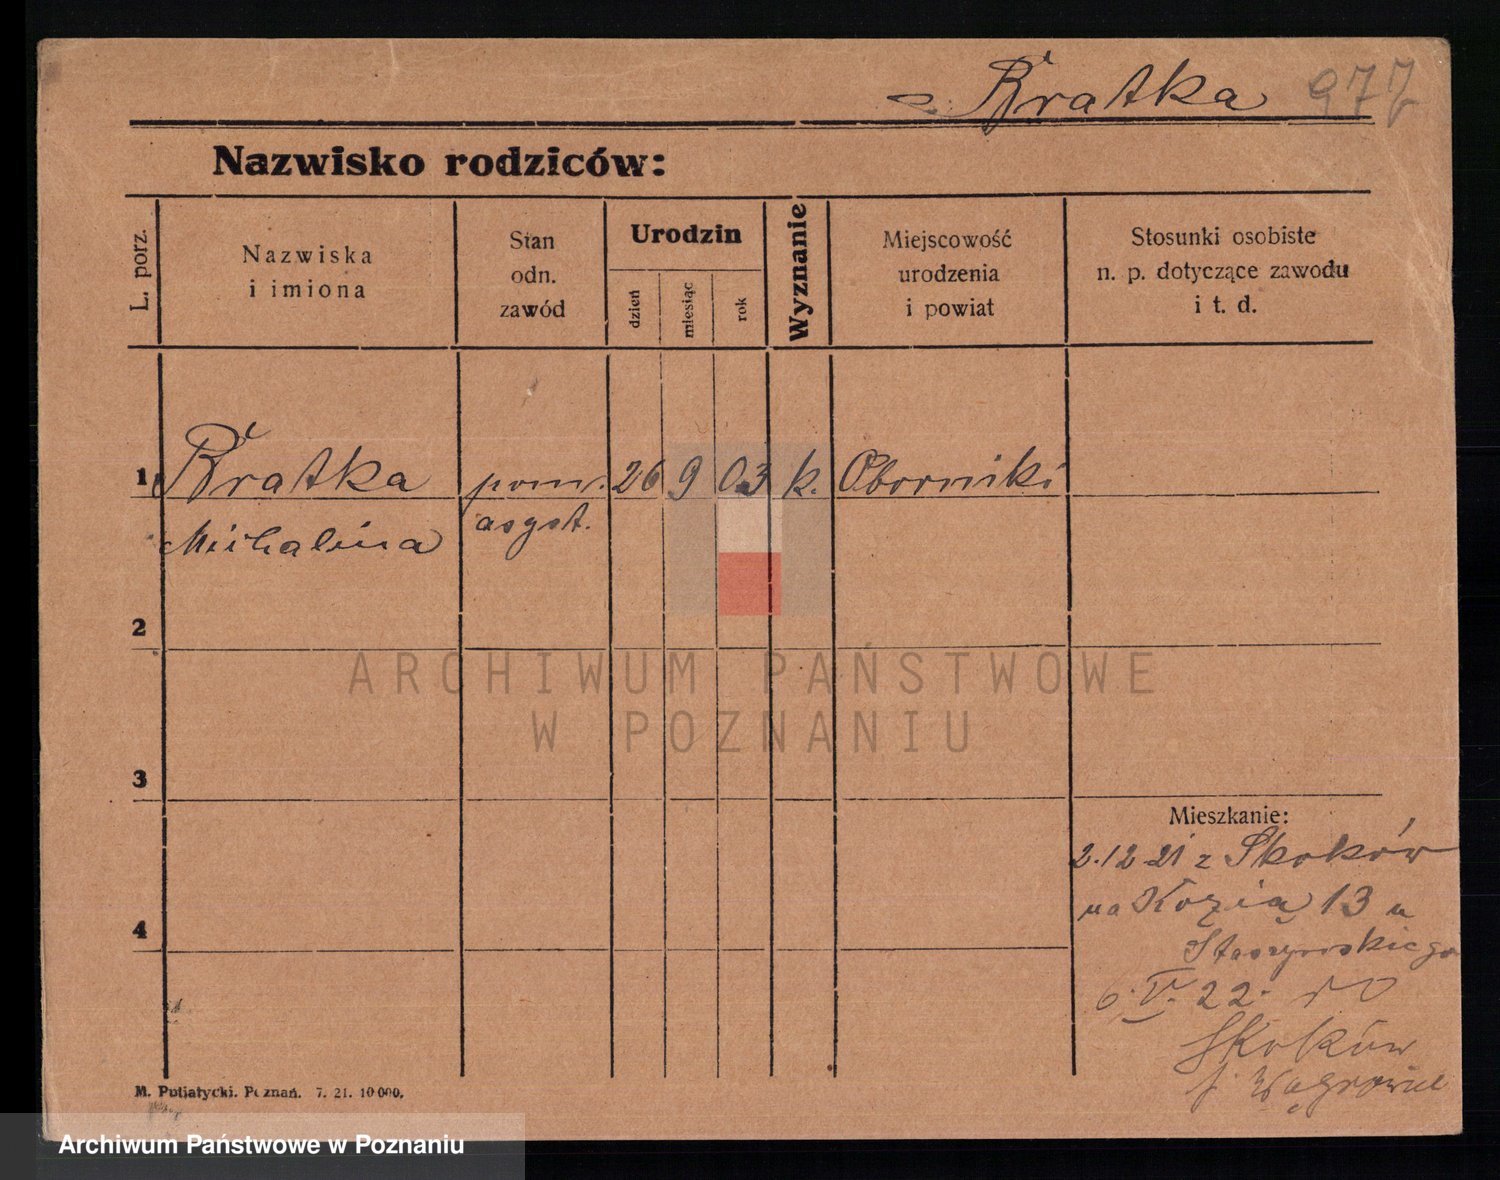 Kratka 977
Nazwisko rodziców:
L. porz.
Nazwiska
i imiona
Stan
odn.
zawód
Urodzin
dzień
miesiąc
rok
Wyznanie
Miejscowość
urodzenia
i powiat
Stosunki osobiste
n. p. dotyczące zawodu
i t. d.
1 Kratka pom. 26 9 03 k. Oborniki
Michalina asyst.
2
3
4
Mieszkanie:
2.12 21 z Skoków
na Kozią 13 u
Staszewskiego
6. V. 22. do
Skoków
p. Wągrowiec
M. Putiatycki. Poznań. 7. 21. 10000.
ARCHIWUM PAŃSTWOWE
W POZNANIU
Archiwum Państwowe w Poznaniu